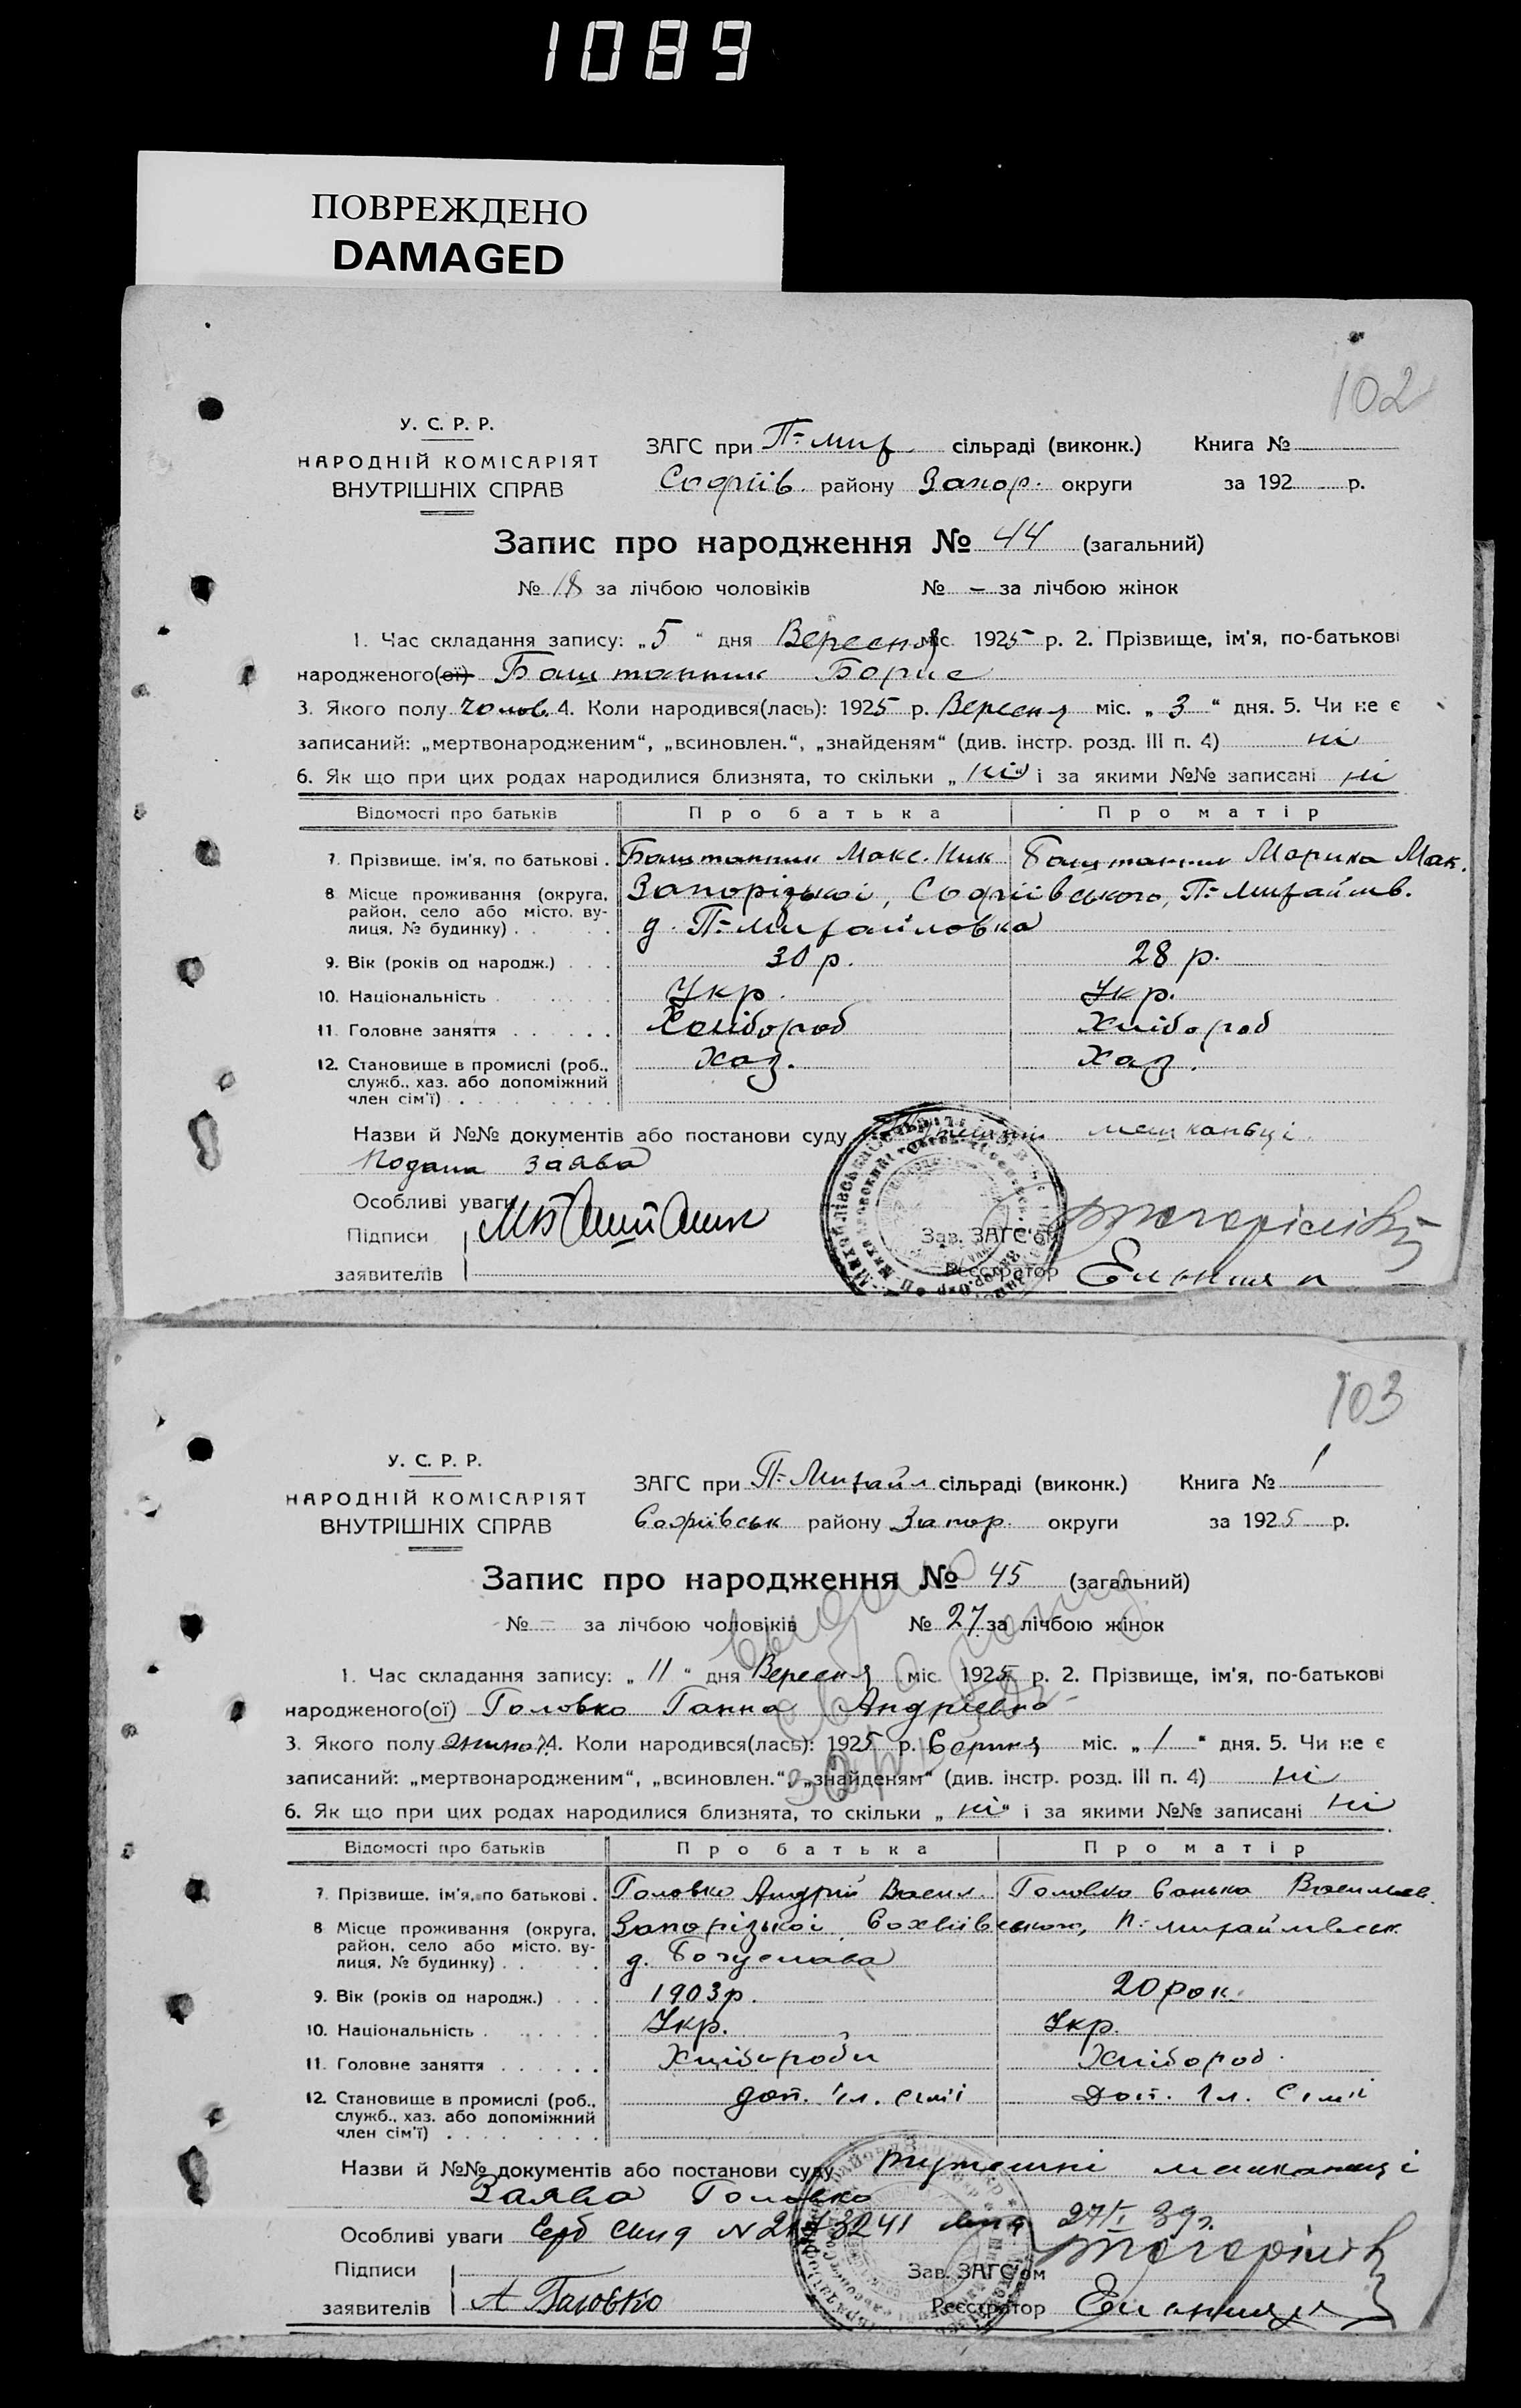 1089
ПОВРЕЖДЕНО
DAMAGED
102
У. С. Р. Р.
НАРОДНІЙ КОМІСАРІЯТ
ВНУТРІШНІХ СПРАВ
ЗАГС при П-Мих. сільраді (виконк.) Книга №
Софіїв. району Запор. округи за 192 р.
Запис про народження № 44 (загальний)
№ 18 за лічбою чоловіків № - за лічбою жінок
1. Час складання запису: „5“ дня Вересня міс. 1925 р. 2. Прізвище, ім'я, по-батькові
народженого(ої) Баштанник Борис
3. Якого полу чолов. 4. Коли народився(лась): 1925 р. Вересня міс. „3“ дня. 5. Чи не є
записаний: „мертвонародженим“, „всиновлен.“, „знайденям“ (див. інстр. розд. III п. 4) ні
6. Як що при цих родах народилися близнята, то скільки „ні“ і за якими №№ записані ні
Відомості про батьків Про батька Про матір
7. Прізвище, ім'я, по батькові . Баштанник Макс. Ник Баштанник Марина Мак.
8 Місце проживання (округа, район, село або місто, вулиця, № будинку) . . Запорізької, Софіївського, П-Михайлів.
д. П-Михайловка
9. Вік (років од народж.) . . . 30 р. 28 р.
10. Національність . Укр. Укр.
11. Головне заняття . . . . . . Хлібороб Хлібороб
12. Становище в промислі (роб., служб., хаз. або допоміжний член сім'ї) . Хаз. Хаз.
Назви й №№ документів або постанови суду мешканьці
Подана заява
Особливі уваги
Підписи
заявителів
Зав. ЗАГС'ом
Реєстратор
103
У. С. Р. Р.
НАРОДНІЙ КОМІСАРІЯТ
ВНУТРІШНІХ СПРАВ
ЗАГС при П-Михайл сільраді (виконк.) Книга № 1
Софіївськ району Запор. округи за 1925 р.
Запис про народження № 45 (загальний)
№ - за лічбою чоловіків № 27 за лічбою жінок
1. Час складання запису: „11“ дня Вересня міс. 1925 р. 2. Прізвище, ім'я, по-батькові
народженого(ої) Головко Ганна Андріевна
3. Якого полу жіноч. 4. Коли народився(лась): 1925 р. Серпня міс. „1“ дня. 5. Чи не є
записаний: „мертвонародженим“, „всиновлен.“, „знайденям“ (див. інстр. розд. III п. 4) ні
6. Як що при цих родах народилися близнята, то скільки „ні“ і за якими №№ записані ні
Відомості про батьків Про батька Про матір
7. Прізвище, ім'я, по батькові . Головко Андрій Васил. Головко Санька Васильев.
8 Місце проживання (округа, район, село або місто, вулиця, № будинку) . . Запорізької Сохвіівського, П-Михайлівськ.
д. Богуслава
9. Вік (років од народж.) . . . 1903 р. 20 рок.
10. Національність . Укр. Укр.
11. Головне заняття . . . . . . Хлібороби Хлібород.
12. Становище в промислі (роб., служб., хаз. або допоміжний член сім'ї) . доп. чл. сімї Доп. чл. Сімії
Назви й №№ документів або постанови суду тутешні мешканьці
Заява Головко
Особливі уваги 27/I 39 г.
Підписи
заявителів А Головко
Зав. ЗАГС'ом
Реєстратор